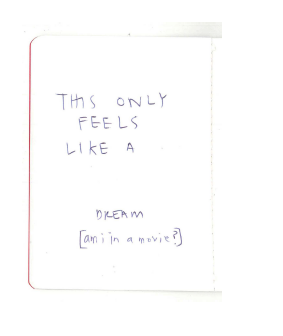 THIS ONLY
FEELS
LIKE A
DREAM
[am i in a movie?]